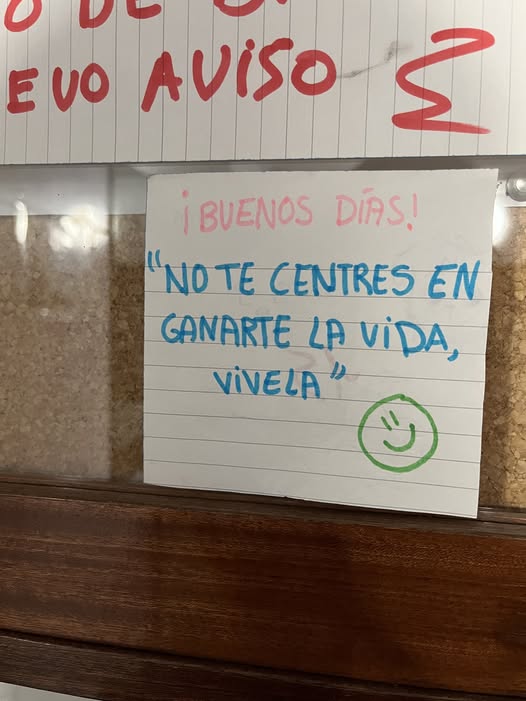 EVO AVISO
¡BUENOS DÍAS!
"NO TE CENTRES EN
GANARTE LA VIDA,
VIVELA"